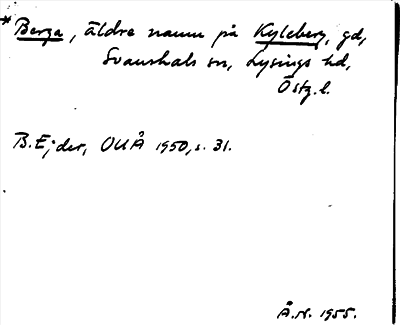 * Berga, äldre namn på Kyleberg, gd,
Svanshals sn, Lysings hd,
Östg.l.
B. Ejder, OUÅ 1950, s. 31.
Å.N. 1955.